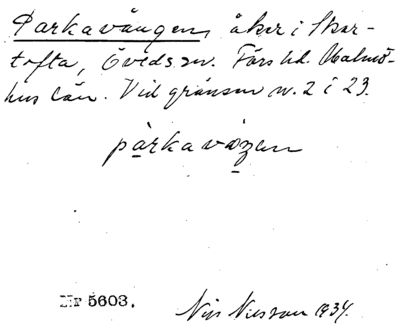 Parkavången, åker i Skar-
tofta, Öveds sn. Färs hd. Malmö-
hus län. Vid gränsen n. 2 i 23.
parkavȧŋen
Nr 5603. Nils Nilsson 1934.